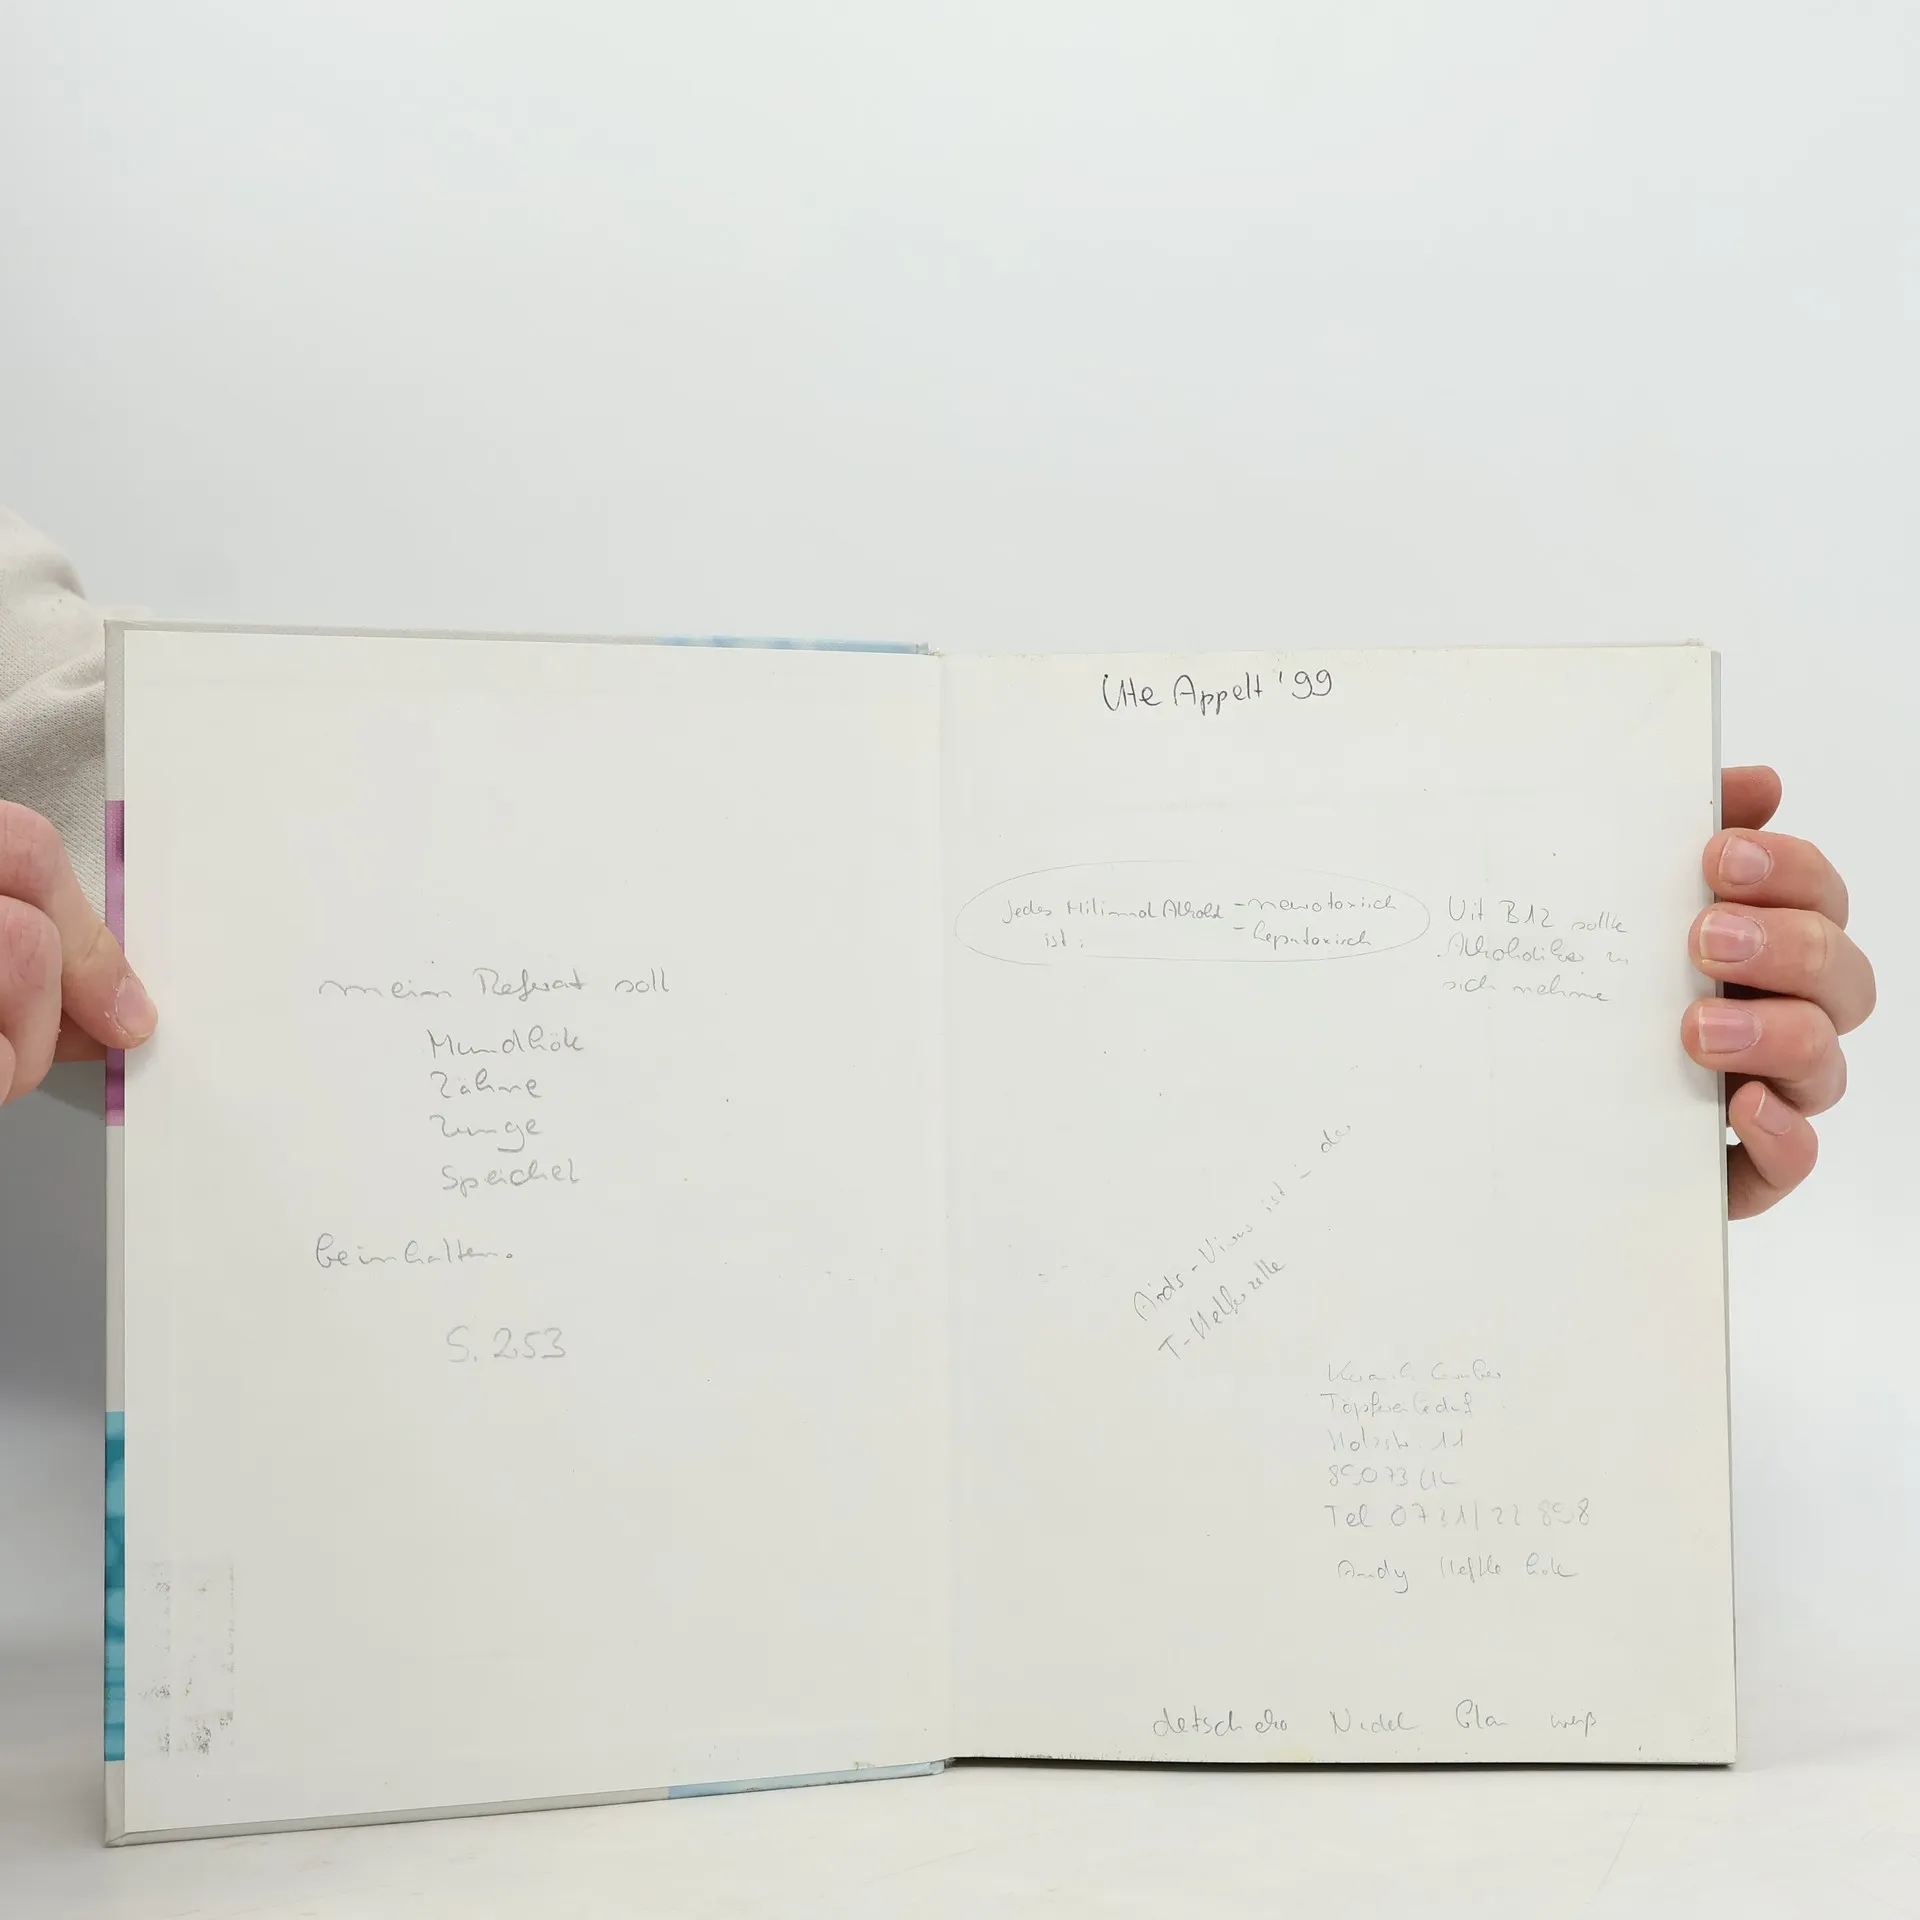 mein Referat soll
Mundhöle
Zähne
Zunge
Speichel
beinhalten.
S. 253
Ute Appelt '99
jedes Milimol Alkohol - neurotoxisch
ist: - hepatoxisch
Vit B12 sollte
Alkoholiker zu
sich nehme
Aids-Virus ist in der
T-Helferzelle
Holzstr. 11
89073
Tel 0731/22 898
Andy